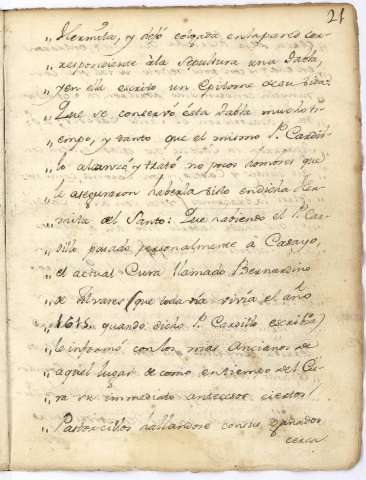 21
„ Hermita, y dejó colgada en la pared cor-
„ respondiente à la Sepultura una Tabla,
„ y en ella escrito un Epitome de su Vida.
„ Que se conservó ésta Tabla mucho ti-
„ empo, y tanto que el mismo P. Cardil-
„ lo alcanzó, y trató no pocos hombres que
„ le aseguraron haberla visto en dicha Her-
„ mita del Santo: Que habiendo el P. Car-
„ dillo pasado personalmente à Carayo,
„ el actual Cura llamado Bernardino
„ de Alvares (que toda via vivia el año
„ 1615 quando dicho P. Cardillo escribia)
„ le informó con los mas Ancianos de
„ aquel lugar de como en tiempo del Cu-
„ ra su immediato antecesor ciertos
„ Pastorcillos hallandose con sus ganados
cerca